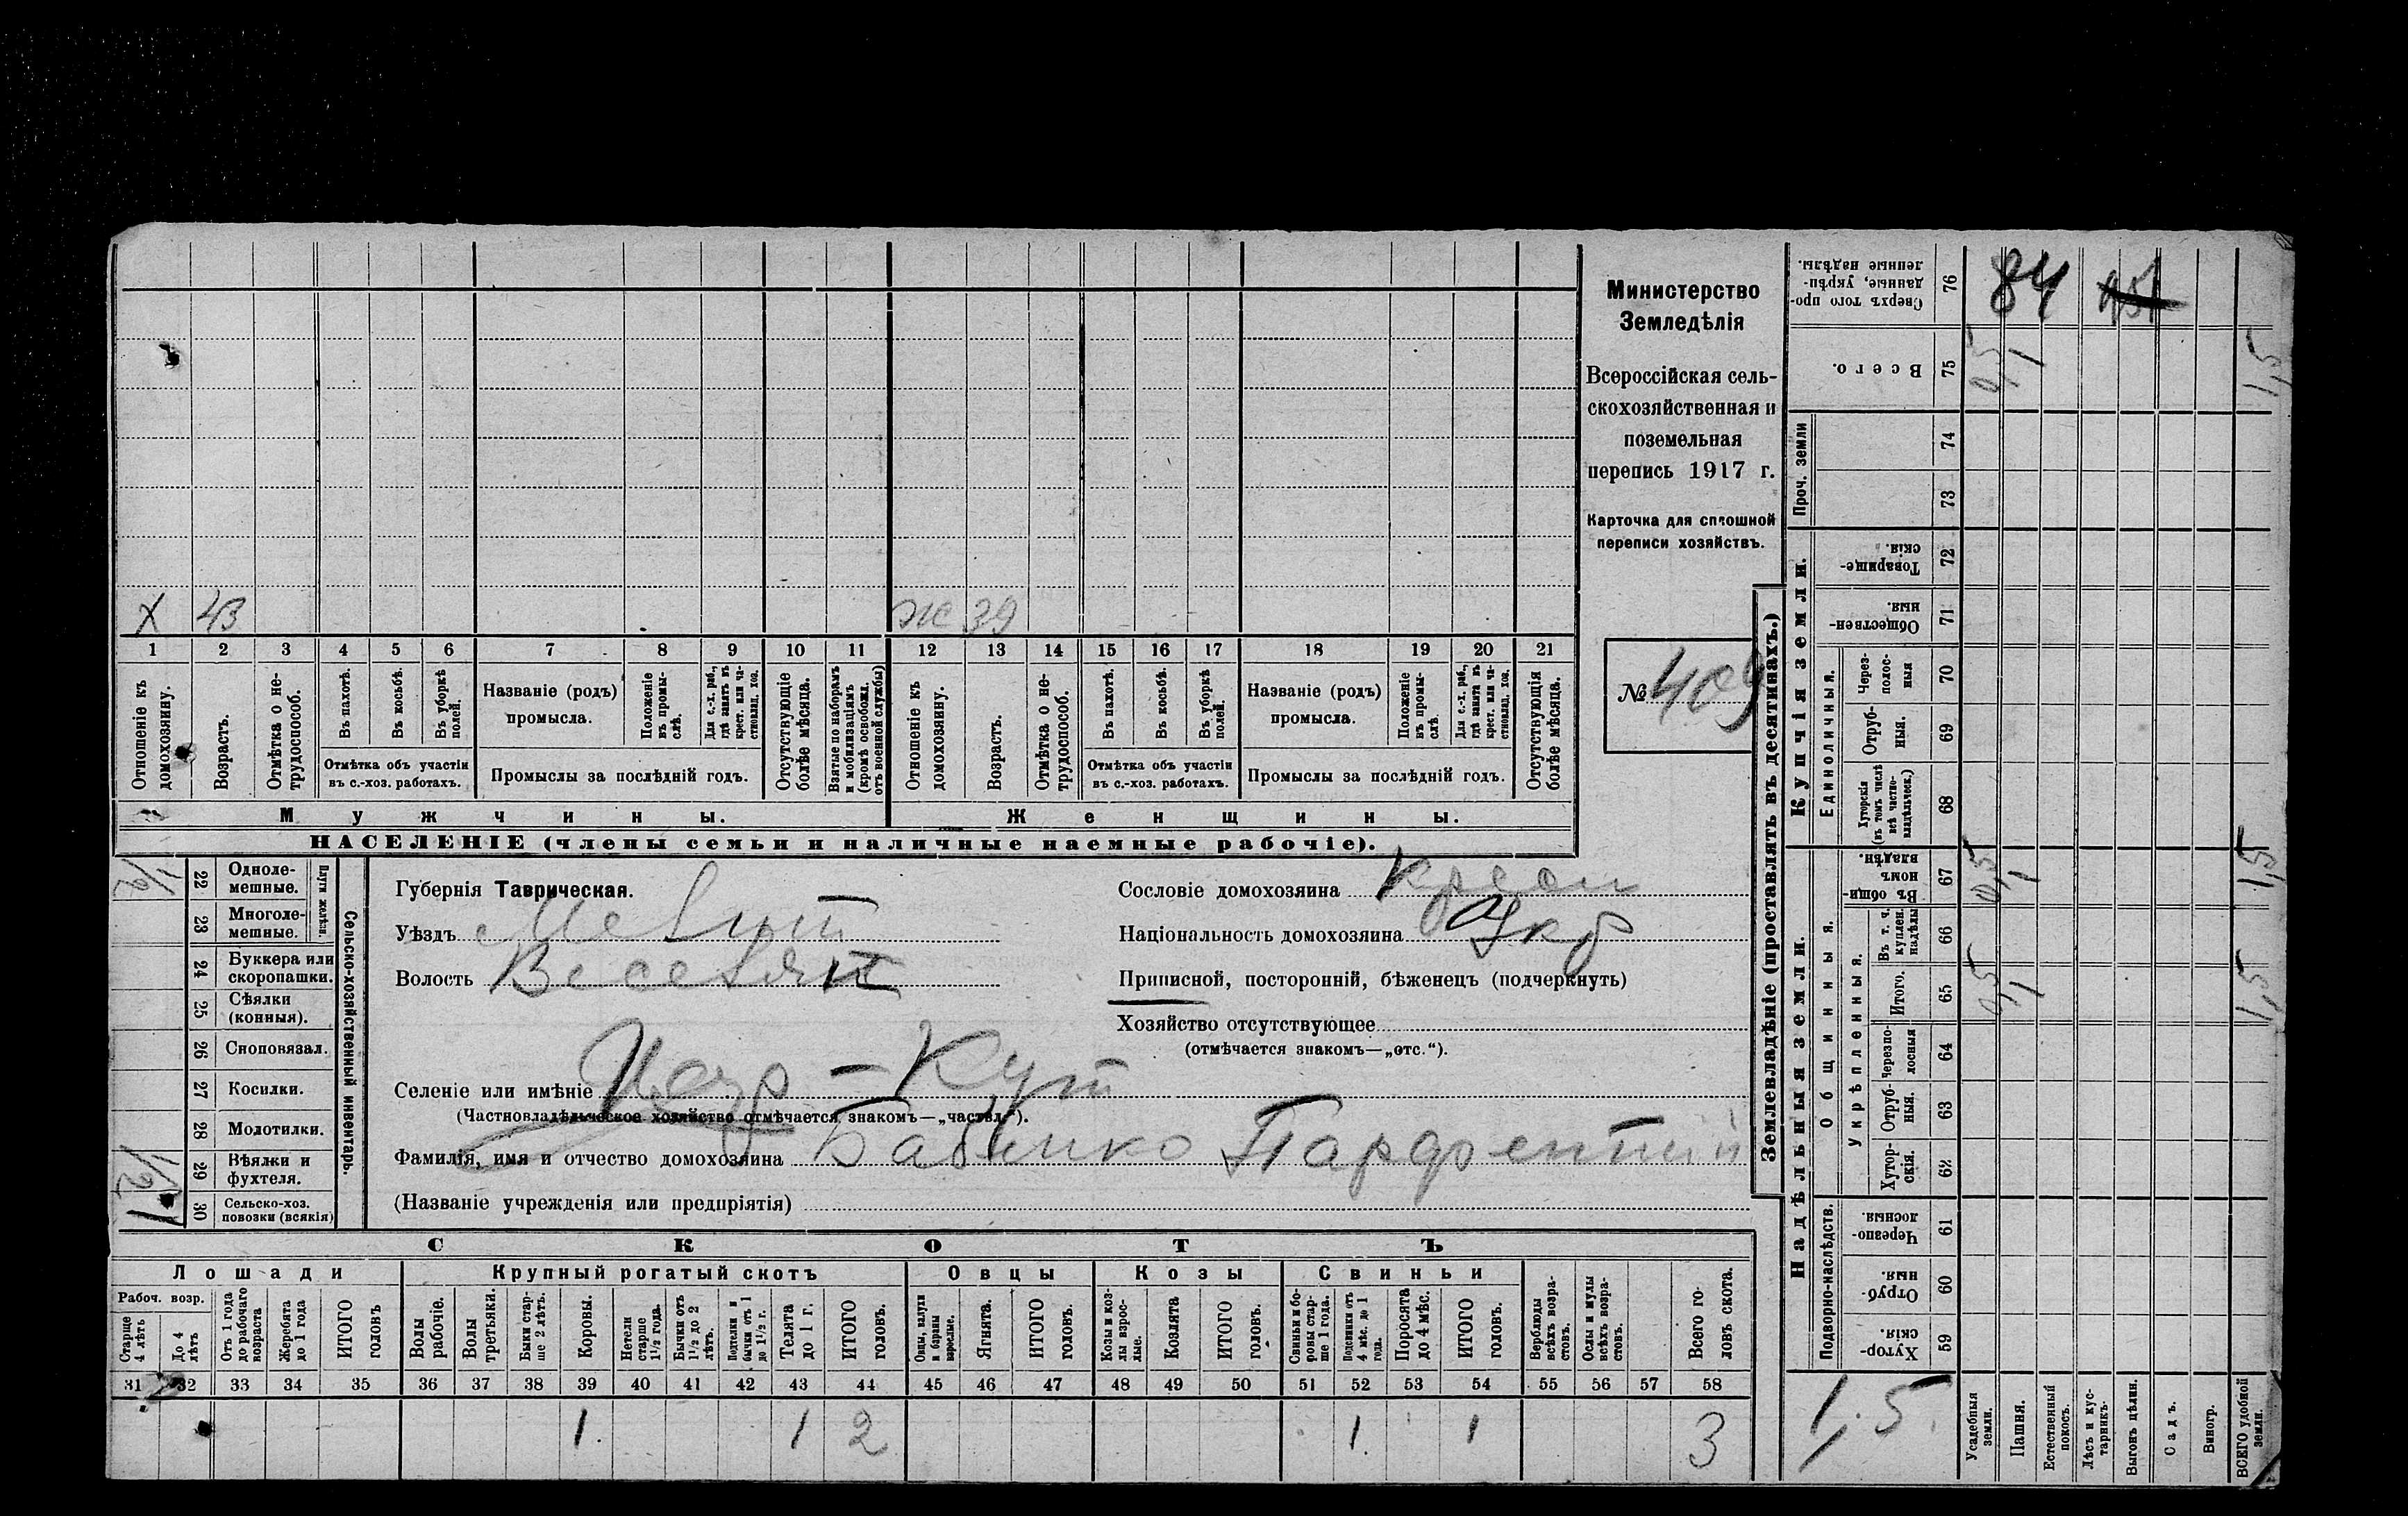 Министерство
Земледѣлія
Всероссійская сель-
скохозяйственная и
поземельная
перепись 1917 г.
Карточка для сплошной
переписи хозяйствъ.
№ 409
X 43
Ж 39
1 2 3 4 5 6 7 8 9 10 11 12 13 14 15 16 17 18 19 20 21
Отношеніе къ домохозяину.
Возрастъ.
Отмѣтка о не-трудоспособ.
Въ пахотѣ.
Въ косьбѣ.
Въ уборкѣ полей.
Отмѣтка объ участіи
въ с.-хоз. работахъ.
Названіе (родъ)
промысла.
Положеніе въ промы-слѣ.
Для с.-х. раб., гдѣ занятъ въ крест. или ча-стновлад. хоз.
Промыслы за послѣдній годъ.
Отсутствующіе болѣе мѣсяца.
Взятые по наборамъ и мобилизаціямъ (кромѣ освобожд. отъ военной службы)
Отношеніе къ домохозяину.
Возрастъ.
Отмѣтка о не-трудоспособ.
Въ пахотѣ.
Въ косьбѣ.
Въ уборкѣ полей.
Отмѣтка объ участіи
въ с.-хоз. работахъ.
Названіе (родъ)
промысла.
Положеніе въ промы-слѣ.
Для с.-х. раб., гдѣ занята въ крест. или ча-стновлад. хоз.
Промыслы за послѣдній годъ.
Отсутствующія болѣе мѣсяца.
Мужчины. Женщины.
НАСЕЛЕНІЕ (члены семьи и наличные наемные рабочіе).
Сельско-хозяйственный инвентарь.
Плуги желѣзн.
22 Одноле-мешные. 1/2
23 Многоле-мешные.
24 Буккера или скоропашки.
25 Сѣялки (конныя).
26 Сноповязал.
27 Косилки.
28 Молотилки.
29 Вѣялки и фухтеля. 1/2
30 Сельско-хоз. повозки (всякія) 1
Губернія Таврическая.
Уѣздъ Мелит
Волость Веселян
Селеніе или имѣніе - Кут
(Частновладѣльческое хозяйство отмѣчается знакомъ—„частвл.“).
Фамилія, имя и отчество домохозяина Бабенко Парфентий
(Названіе учрежденія или предпріятія)
Сословіе домохозяина крест
Національность домохозяина Укр
Приписной, посторонній, бѣженецъ (подчеркнуть)
Хозяйство отсутствующее
(отмѣчается знакомъ—„отс.“).
СКОТЪ
Лошади Крупный рогатый скотъ Овцы Козы Свиньи
Рабоч. возр.
Старше 4 лѣтъ
До 4 лѣтъ
Отъ 1 года до рабочаго возраста
Жеребята до 1 года
ИТОГО головъ
Волы рабочіе.
Волы третьяки.
Быки стар-ше 2 лѣтъ.
Коровы.
Нетели старше 1½ года.
Бычки отъ 1½ до 2 лѣтъ.
Подтелки и бычки отъ 1 до 1½ г.
Телята до 1 г.
ИТОГО головъ.
Овцы, валухи и бараны взрослые.
Ягнята.
ИТОГО головъ.
Козы и коз-лы взрос-лые.
Козлята
ИТОГО головъ.
Свиньи и бо-ровы стар-ше 1 года.
Подсвинки отъ 4 мѣс. до 1 года.
Поросята до 4 мѣс.
ИТОГО головъ.
Верблюды всѣхъ возра-стовъ.
Ослы и мулы всѣхъ возра-стовъ.
Всего го-ловъ скота.
31 32 33 34 35 36 37 38 39 40 41 42 43 44 45 46 47 48 49 50 51 52 53 54 55 56 57 58
1 1 2 1 1 3
Землевладѣніе (проставлять въ десятинахъ.)
76 Сверхъ того про-данные, укрѣп-ленные надѣлы. 84
75 Всего. 0,5 1 1,5
Проч. земли
74
73
Купчія земли.
72 Товарище-скія.
71 Обществен-ныя.
Единоличныя.
70 Через-полос-ныя
69 Отруб-ныя.
68 Хуторскія (въ томъ числѣ всѣ частно-владѣльческ.)
Надѣльныя земли.
Общинныя.
67 Въ общи-номъ владѣн. 0,5 1 1,5
Укрѣпленныя.
66 Въ т. ч. куплен. надѣлы
65 Итого. 0,5 1 1,5
64 Черезпо-лосныя
63 Отруб-ныя.
62 Хутор-скія.
Подворно-наслѣдств.
61 Черезпо-лосныя.
60 Отруб-ныя.
59 Хутор-скія.
1,5
Усадебныя земли.
Пашня.
Естественный покосъ.
Лѣсъ и кус-тарникъ.
Выгонъ цѣлин.
Садъ.
Виногр.
ВСЕГО удобной земли.